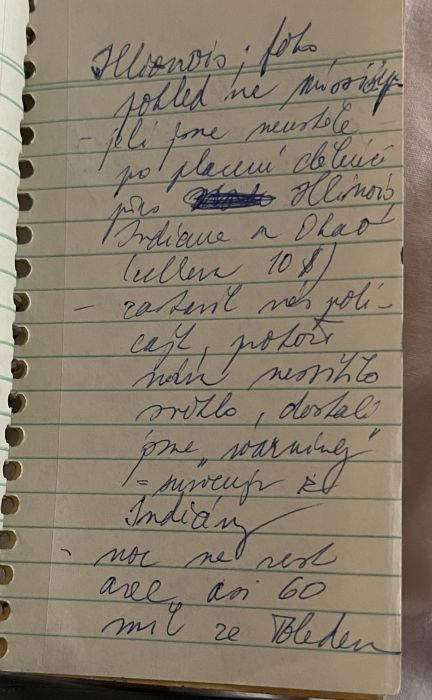 Illionois, foto
pohled na missisip
- jeli jsme neustále
po placené dálnici
přes Illinois,
Indiana a Ohao
(celkem 10 $)
- zastavil nás poli-
cajt, protože
nám nesvítilo
světlo, dostali
jsme „warning"
= suvenýr z
Indiány
- noc na rest
aree, asi 60
mil za Toledem